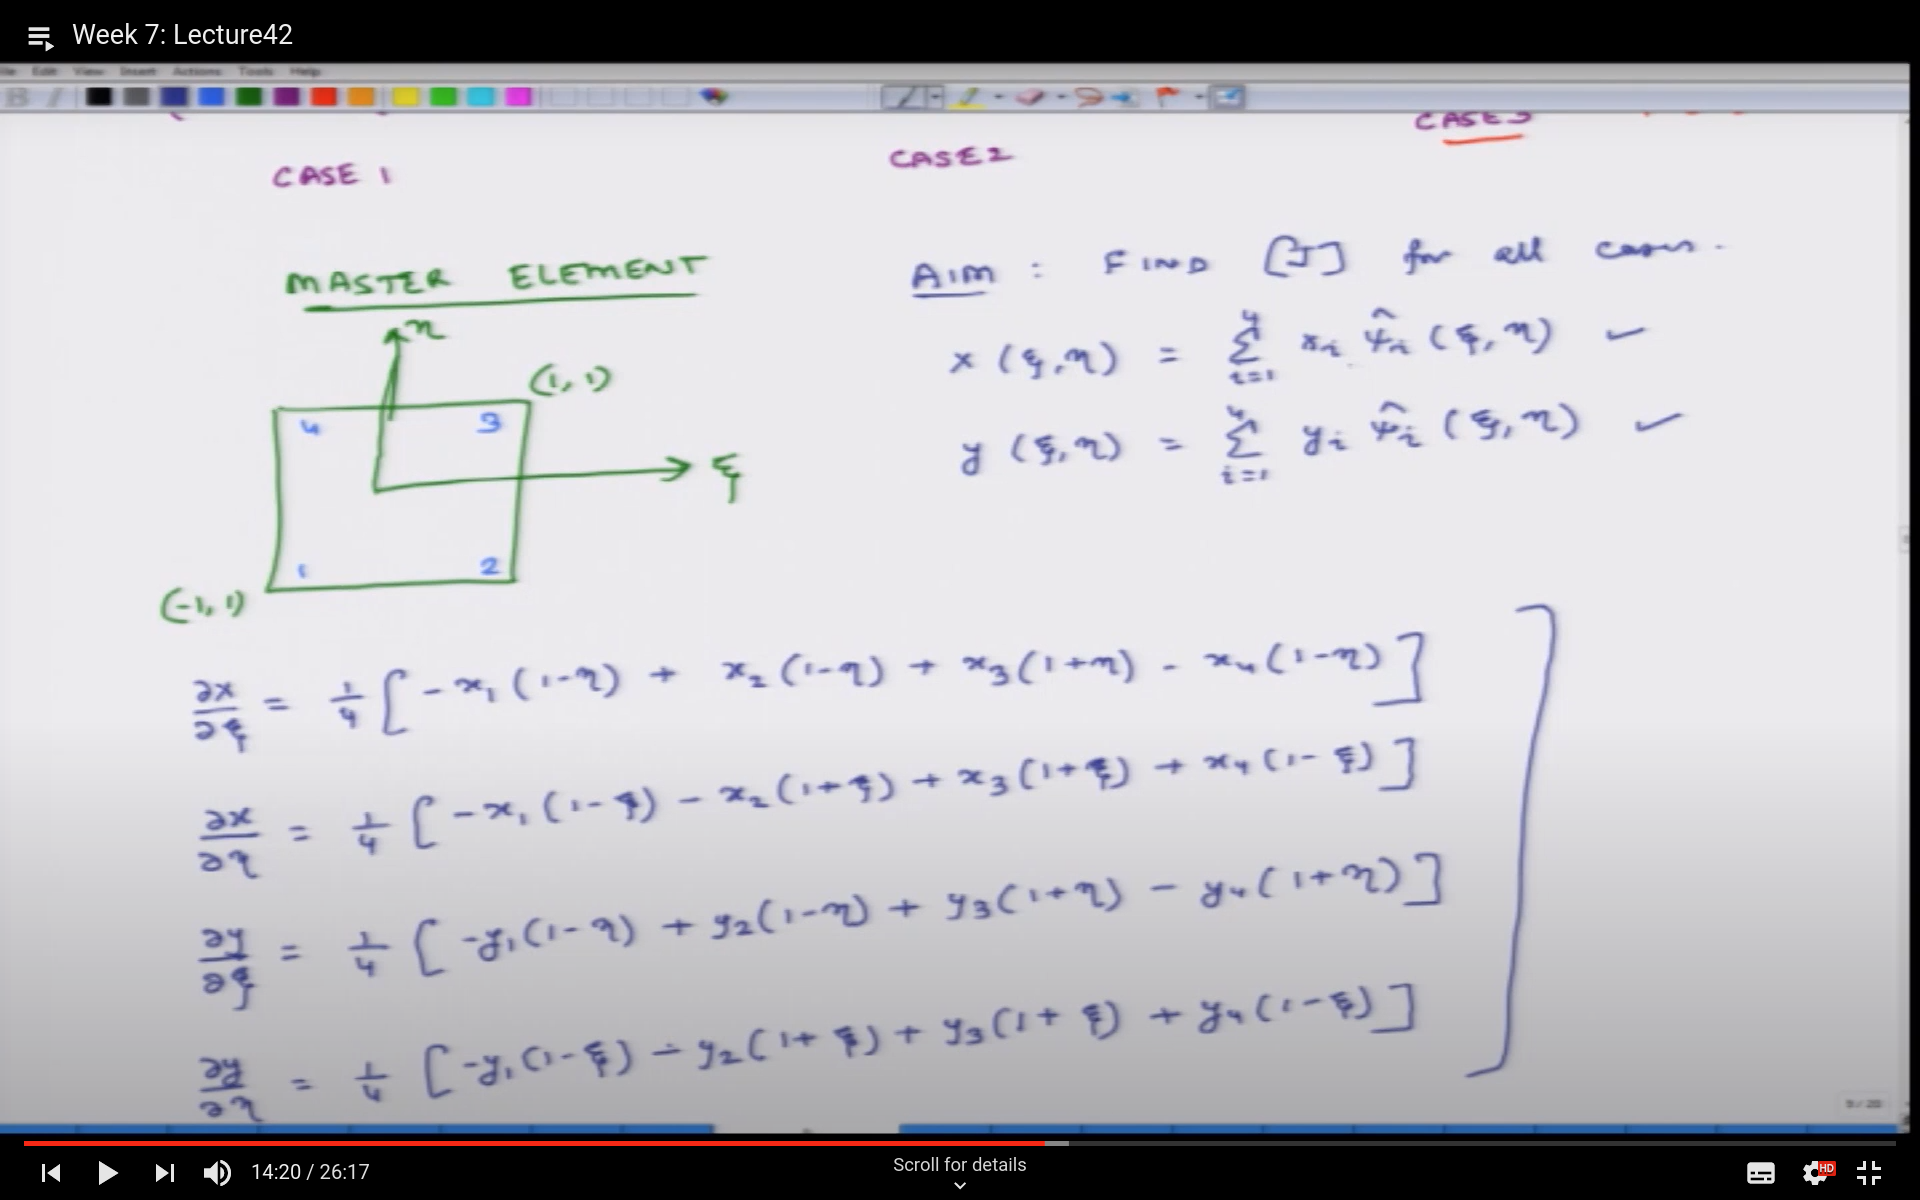 Week 7: Lecture42
File Edit View Insert Actions Tools Help
CASE 1
CASE 2
CASE 3
MASTER ELEMENT
η
(1, 1)
4 3
ξ
1 2
(-1, 1)
AIM : FIND [J] for all cases.
x (ξ,η) = Σ_{i=1}^{4} x_i ψ̂_i (ξ,η) ✓
y (ξ,η) = Σ_{i=1}^{4} y_i ψ̂_i (ξ,η) ✓
∂x/∂ξ = 1/4 [ -x₁(1-η) + x₂(1-η) + x₃(1+η) - x₄(1-η) ]
∂x/∂η = 1/4 [ -x₁(1-ξ) - x₂(1+ξ) + x₃(1+ξ) + x₄(1-ξ) ]
∂y/∂ξ = 1/4 [ -y₁(1-η) + y₂(1-η) + y₃(1+η) - y₄(1+η) ]
∂y/∂η = 1/4 [ -y₁(1-ξ) - y₂(1+ξ) + y₃(1+ξ) + y₄(1-ξ) ]
9 / 20
14:20 / 26:17
Scroll for details
HD